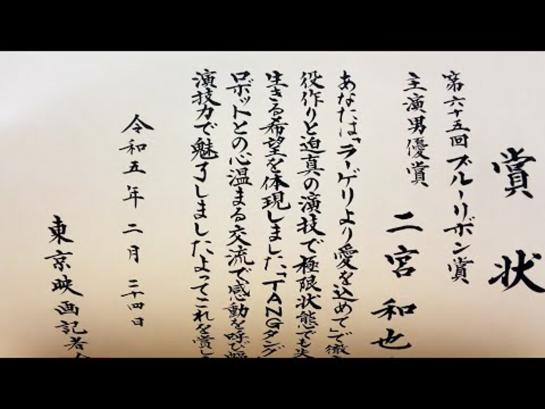 賞状
第六十五回 ブルーリボン賞
主演男優賞
二宮 和也
あなたは「ラーゲリより愛を込めて」で徹
役作りと迫真の演技で極限状態でも
生きる希望を体現しました「TANGタング」
ロボットとの心温まる交流で感動を呼び
演技力で魅了しましたよってこれを賞し
令和五年二月二十四日
東京映画記者会